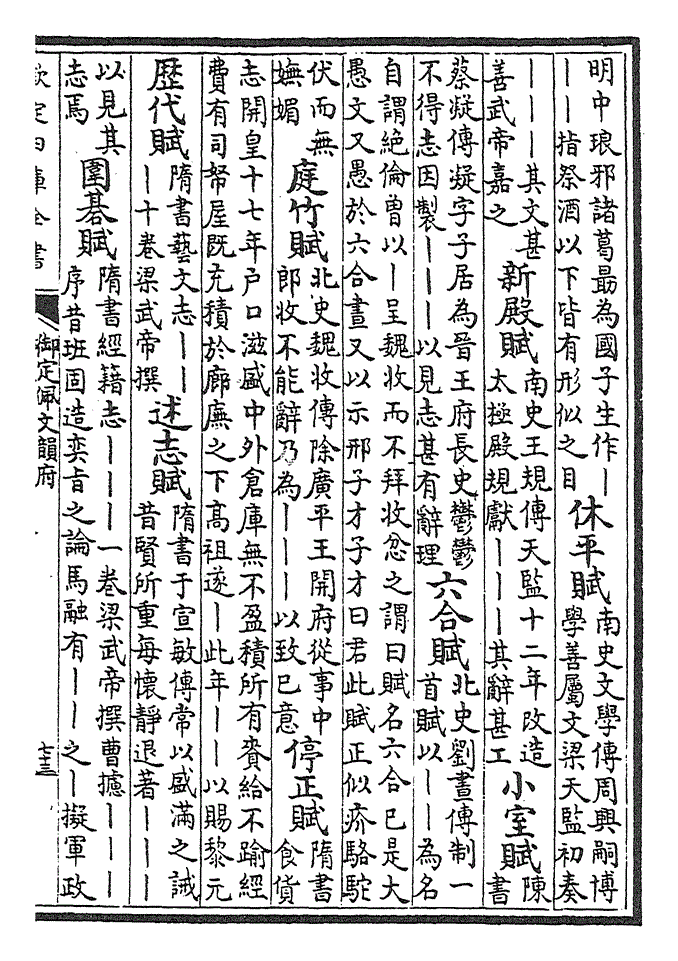 明中琅邪諸葛最為國子生作｜
｜｜指祭酒以下皆有形似之目
休平賦
南史文學傳周興嗣博
學善屬文梁天監初奏
｜｜｜其文甚
善武帝嘉之
新殿賦
南史王規傳天監十二年改造
太極殿規獻｜｜｜其辭甚工
小室賦
陳
書
蔡凝傳凝字子居為晉王府長史鬱鬱
不得志因製｜｜｜以見志甚有辭理
六合賦
北史劉晝傳制一
首賦以｜｜為名
自謂絶倫曽以｜呈魏收而不拜收忿之謂曰賦名六合已是大
愚文又愚於六合晝又以示邢子才子才曰君此賦正似疥駱駝
伏而無
嫵媚
庭竹賦
北史魏收傳除廣平王開府從事中
郎收不能辭乃為｜｜｜以致已意
停正賦
隋書
食貨
志開皇十七年户口滋盛中外倉庫無不盈積所有賚給不踰經
費有司帑屋既充積於廊廡之下高祖遂｜此年｜｜以賜黎元
歴代賦
隋書藝文志｜｜
｜十卷梁武帝撰
述志賦
隋書于宣敏傳常以盛滿之誡
昔賢所重每懷靜退著｜｜｜
以見其
志焉
圍碁賦
隋書經籍志｜｜｜一卷梁武帝撰曹攄｜｜｜
序昔班固造奕旨之論馬融有｜｜之｜擬軍政
欽定四庫全書
御定佩文韻府
七十三